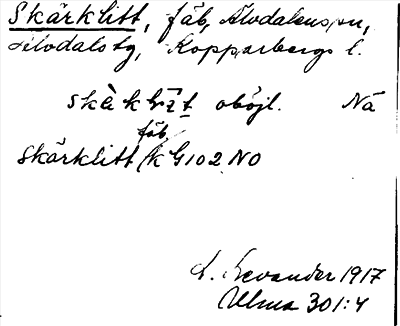 Skärklitt, fäb, Älvdalens sn,
Älvdals tg, Kopparbergs l.
oböjl. Nä
fäb,
skärklitt K G102 NO
L. Levander 1917
Ulma 301:4